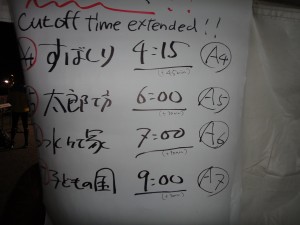 Cutoff time extended!!
すばしり 4:15 A4
(+45min)
太郎坊 6:00 A5
水ヶ塚 7:00 A6
子どもの国 9:00 A7